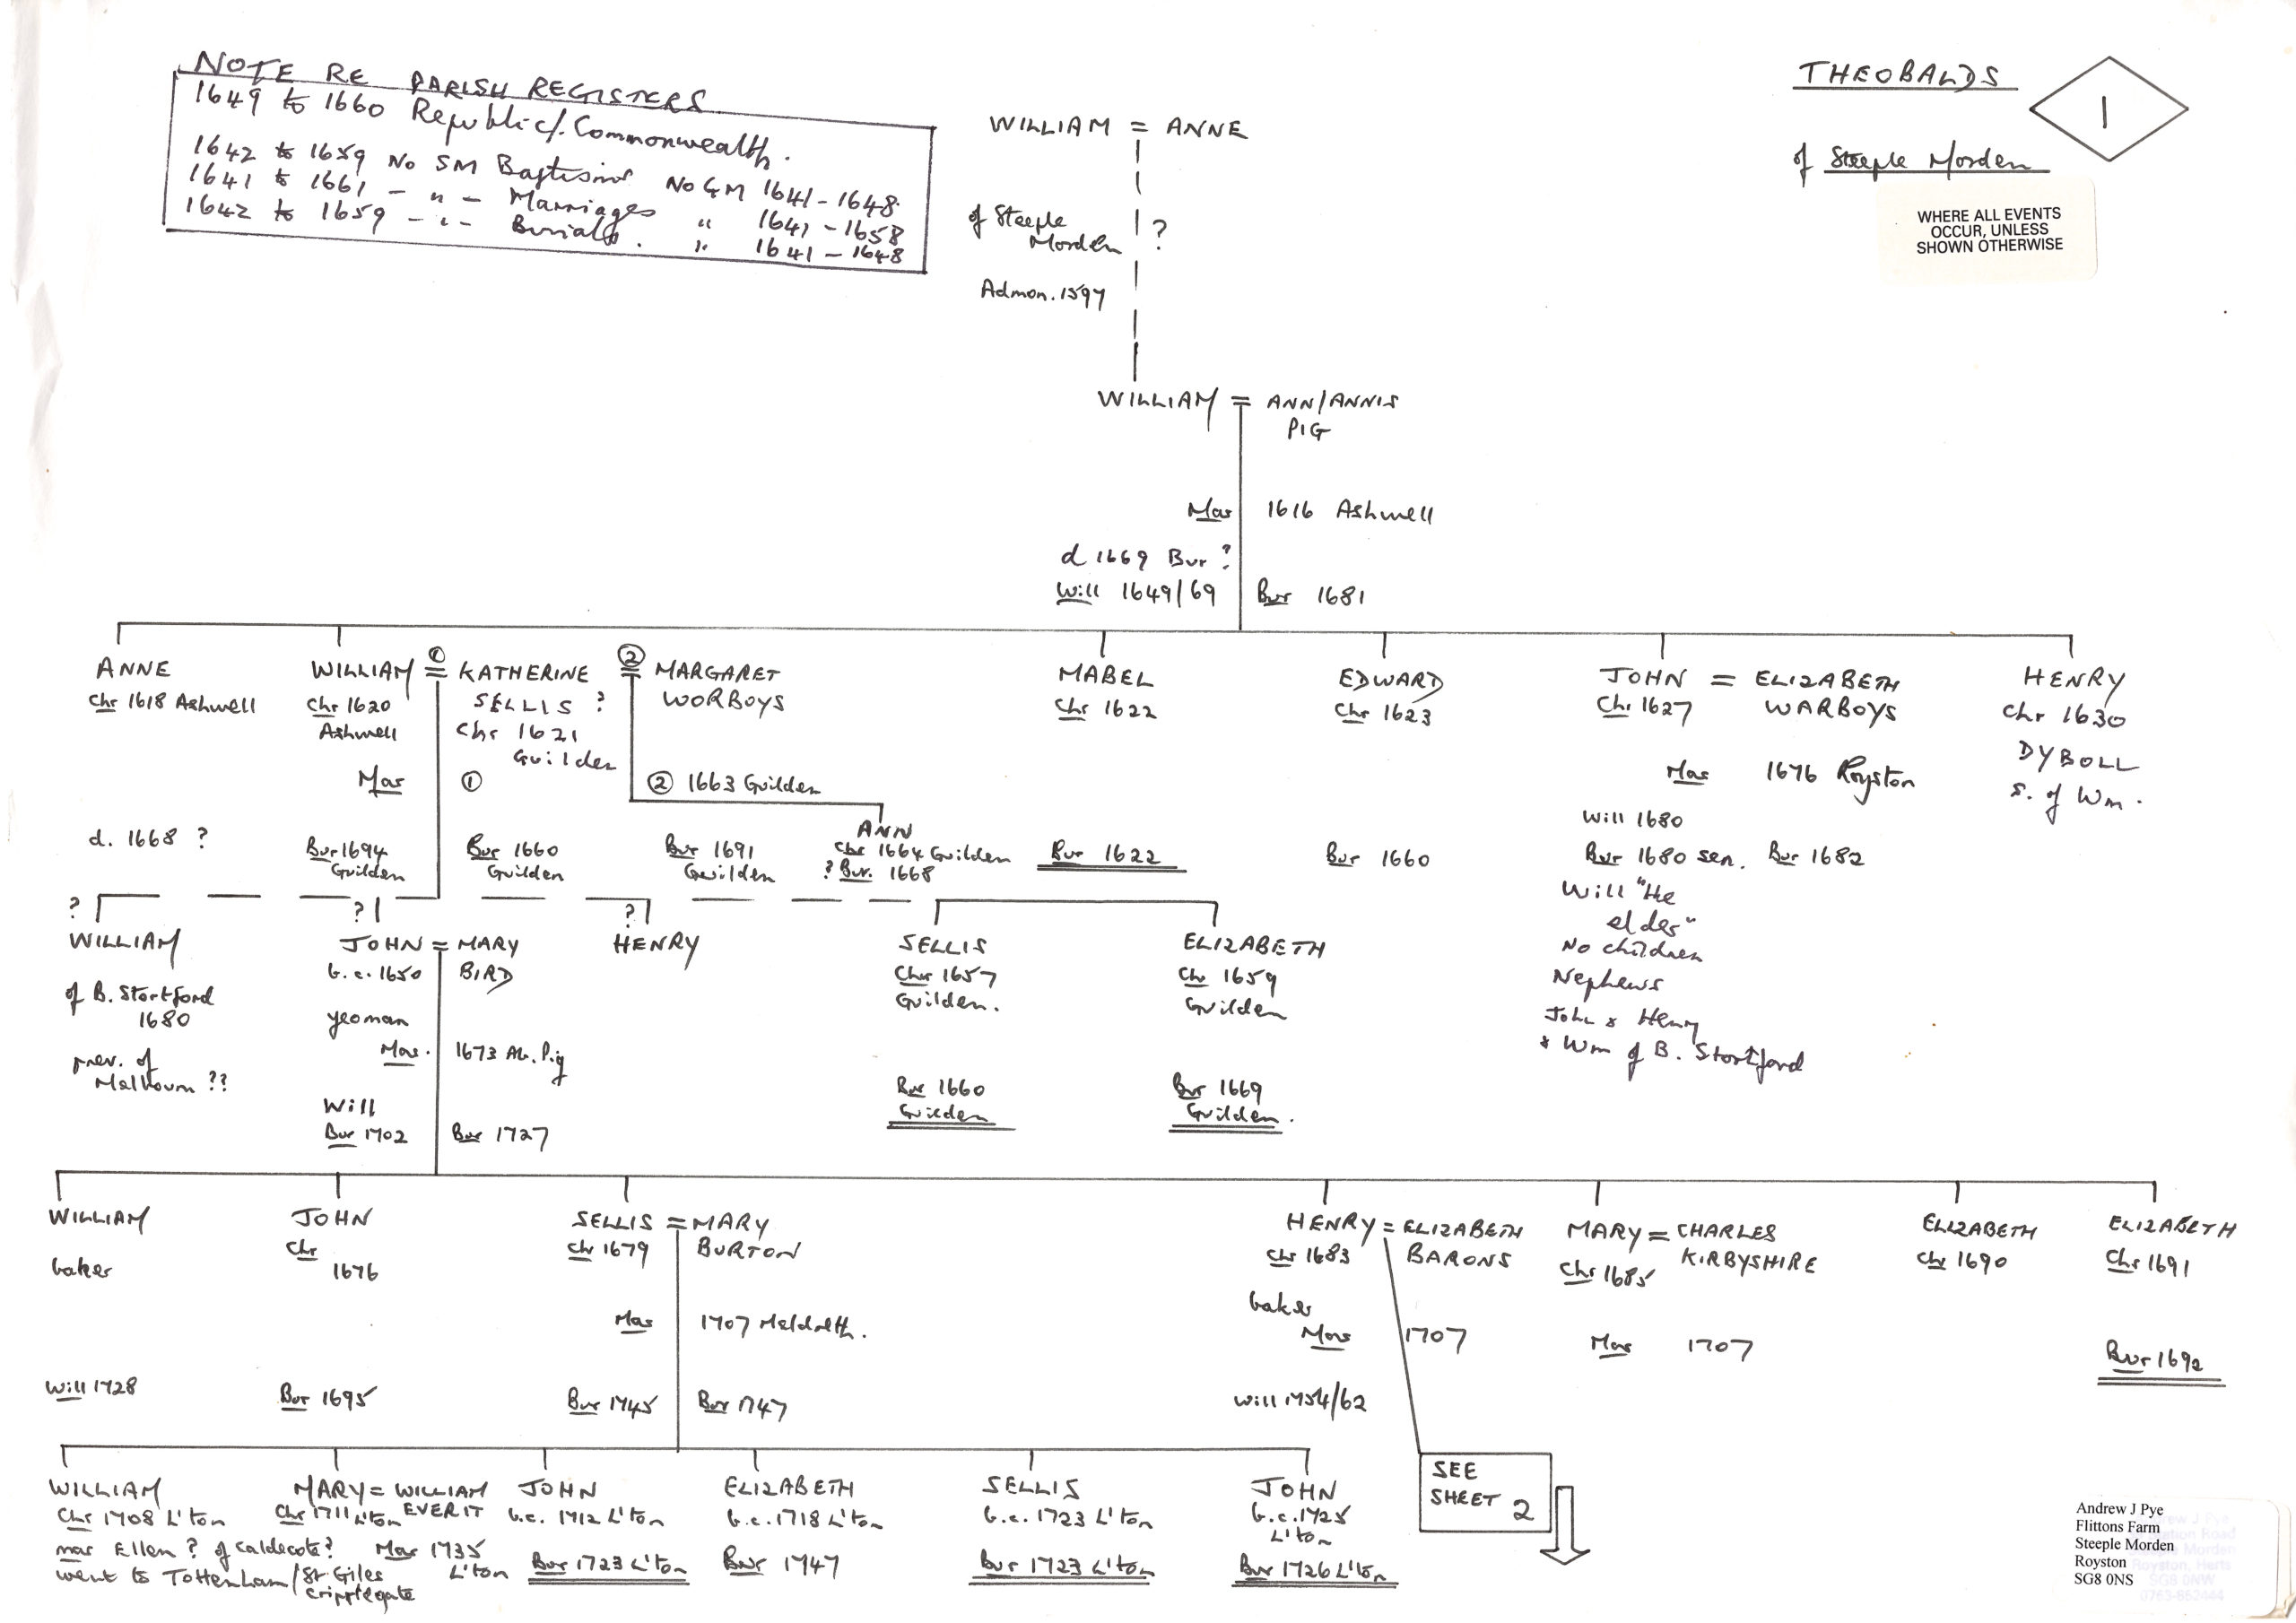 NOTE RE PARISH REGISTERS
1649 to 1660 Republic/Commonwealth.
1642 to 1659 No SM Baptisms No GM 1641-1648.
1641 to 1661 - " - Marriages " 1641-1658
1642 to 1659 - " - Burials. " 1641-1648
THEOBALDS
1
of Steeple Morden
WHERE ALL EVENTS
OCCUR, UNLESS
SHOWN OTHERWISE
WILLIAM = ANNE
of Steeple
Morden
?
Admon. 1597
WILLIAM = ANN/ANNIS
PIG
Mar 1616 Ashwell
d 1669 Bur ?
Will 1649/69 Bur 1681
ANNE
Chr 1618 Ashwell
d. 1668 ?
WILLIAM ① = KATHERINE
SELLIS ?
Chr 1620
Ashwell
Chr 1621
Guilden
Mar ①
Bur 1694
Guilden
Bur 1660
Guilden
② = MARGARET
WORBOYS
② 1663 Guilden
Bur 1691
Guilden
ANN
Chr 1664 Guilden
? Bur. 1668
MABEL
Chr 1622
Bur 1622
EDWARD
Chr 1623
Bur 1660
JOHN = ELIZABETH
WARBOYS
Chr 1627
Mar 1676 Royston
Will 1680
Bur 1680 sen. Bur 1682
Will "the
elder"
No children
Nephews
John & Henry
& Wm of B. Stortford
HENRY
Chr 1630
DYBOLL
s. of Wm.
?
WILLIAM
of B. Stortford
1680
prev. of
Melbourn ??
?
JOHN = MARY
BIRD
b.c. 1650
yeoman
Mar. 1673 Ab. Pig
Will
Bur 1702 Bur 1727
?
HENRY
SELLIS
Chr 1657
Guilden.
Bur 1660
Guilden
ELIZABETH
Chr 1659
Guilden
Bur 1669
Guilden.
WILLIAM
baker
Will 1728
JOHN
Chr
1676
Bur 1695
SELLIS = MARY
BURTON
Chr 1679
Mar 1707 Meldreth.
Bur 1745 Bur 1747
HENRY = ELIZABETH
BARONS
Chr 1683
baker
Mar 1707
Will 1754/62
MARY = CHARLES
KIRBYSHIRE
Chr 1685
Mar 1707
ELIZABETH
Chr 1690
ELIZABETH
Chr 1691
Bur 1692
WILLIAM
Chr 1708 L'ton
mar Ellen ? of Caldecote?
went to Tottenham/St Giles
Cripplegate
MARY = WILLIAM
EVERIT
Chr 1711 L'ton
Mar 1735
L'ton
JOHN
b.c. 1712 L'ton
Bur 1723 L'ton
ELIZABETH
b.c. 1718 L'ton
Bur 1747
SELLIS
b.c. 1723 L'ton
Bur 1723 L'ton
JOHN
b.c. 1725
L'ton
Bur 1726 L'ton
SEE
SHEET 2
Andrew J Pye
Flittons Farm
Steeple Morden
Royston
SG8 0NS